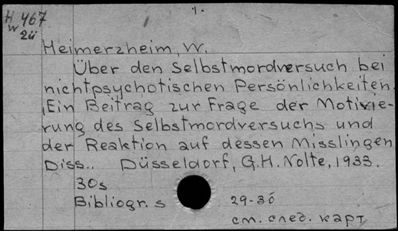 1.
H 467
W 2ü
Heimerzheim, W.
Über den Selbstmordversuch bei
nichtpsychotischen Persönlichkeiten.
(Ein Beitrag zur Frage der Motivie-
rung des Selbstmordversuchs und
der Reaktion auf dessen Misslingen
Diss.. Düsseldorf, G.H. Nolte, 1933.
30s
Bibliogr. s 29-30
см. след. карт